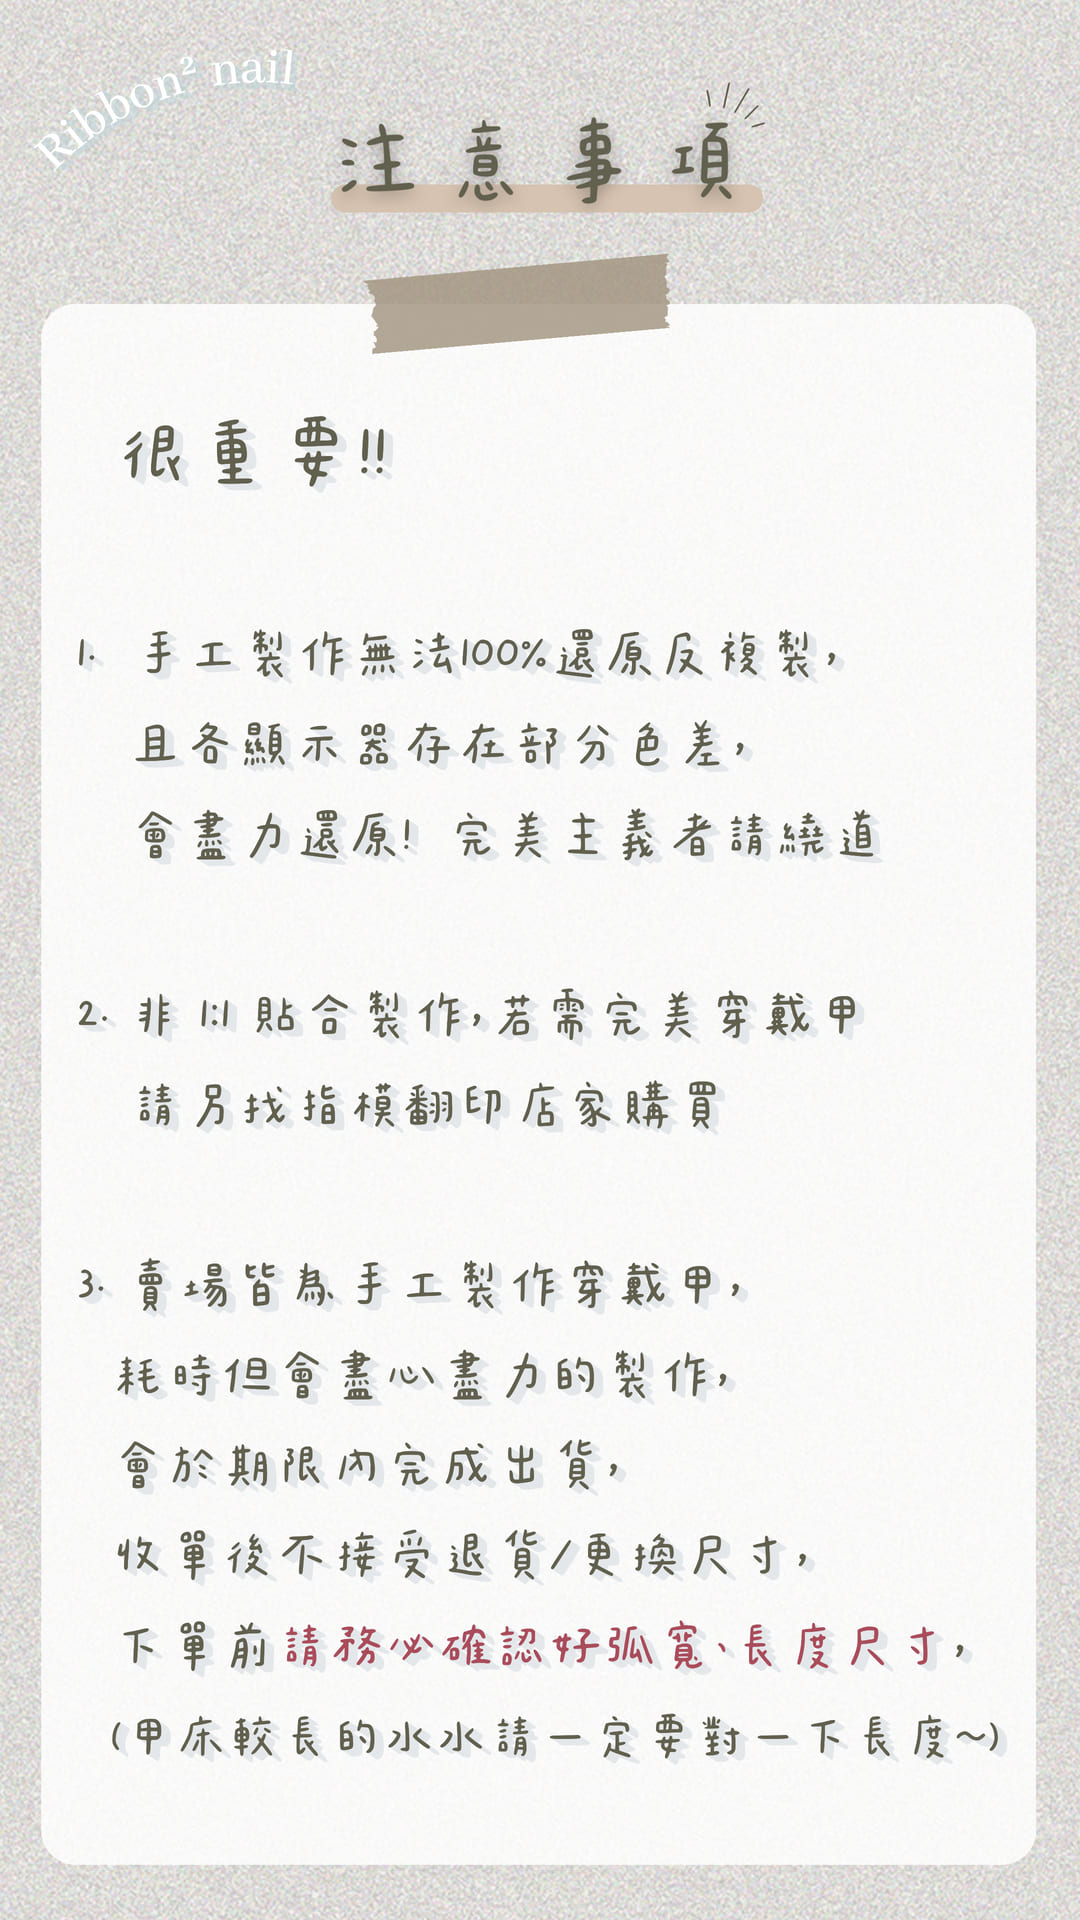 Ribbon² nail
注意事項
很重要!!
1. 手工製作無法100%還原反複製，
且各顯示器存在部分色差，
會盡力還原! 完美主義者請繞道
2. 非 1:1 貼合製作，若需完美穿戴甲
請另找指模翻印店家購買
3. 賣場皆為手工製作穿戴甲，
耗時但會盡心盡力的製作，
會於期限內完成出貨，
收單後不接受退貨/更換尺寸，
下單前請務必確認好弧寬、長度尺寸，
(甲床較長的水水請一定要對一下長度~)